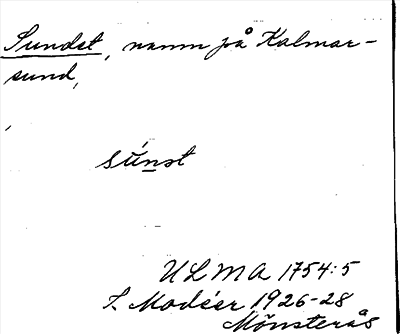 Sundet, namn på Kalmar-
sund,
súnst
ULMA 1754:5
I. Modéer 1926-28
Mönsterås